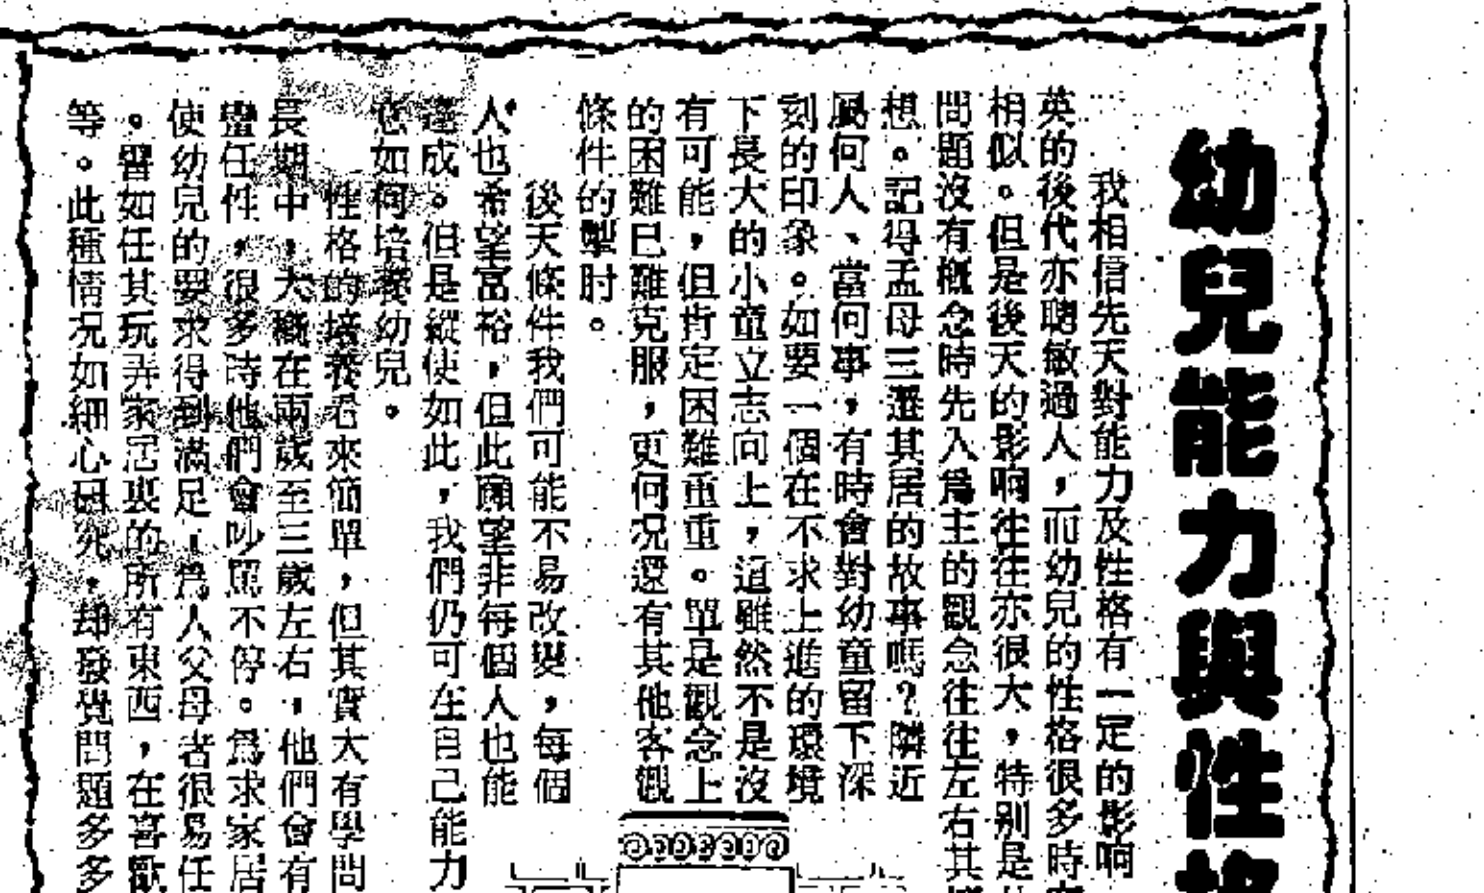 幼兒能力與性格
我相信先天對能力及性格有一定的影响
英的後代亦聰敏過人，而幼兒的性格很多時
相似。但是後天的影响往往亦很大，特别是
問題沒有概念時先入爲主的觀念往往左右其
想。記得孟母三遷其居的故事嗎？隣近
屬何人、當何事，有時會對幼童留下深
刻的印象。如要一個在不求上進的環境
下長大的小童立志向上，這雖然不是沒
有可能，但肯定困難重重。單是觀念上
的困難已難克服，更何况還有其他客觀
條件的掣肘。
後天條件我們可能不易改變，每個
人也希望富裕，但此願望非每個人也能
達成。但是縱使如此，我們仍可在自己能力
如何培養幼兒。
性格的培養看來簡單，但其實大有學問
長期中，大概在兩歲至三歲左右，他們會有
蠻任性，很多時他們會吵罵不停。爲求家居
使幼兒的要求得到滿足，爲人父母者很易任
。譬如任其玩弄家居裏的所有東西，在喜歡
等。此種情况如細心研究，却發覺問題多多